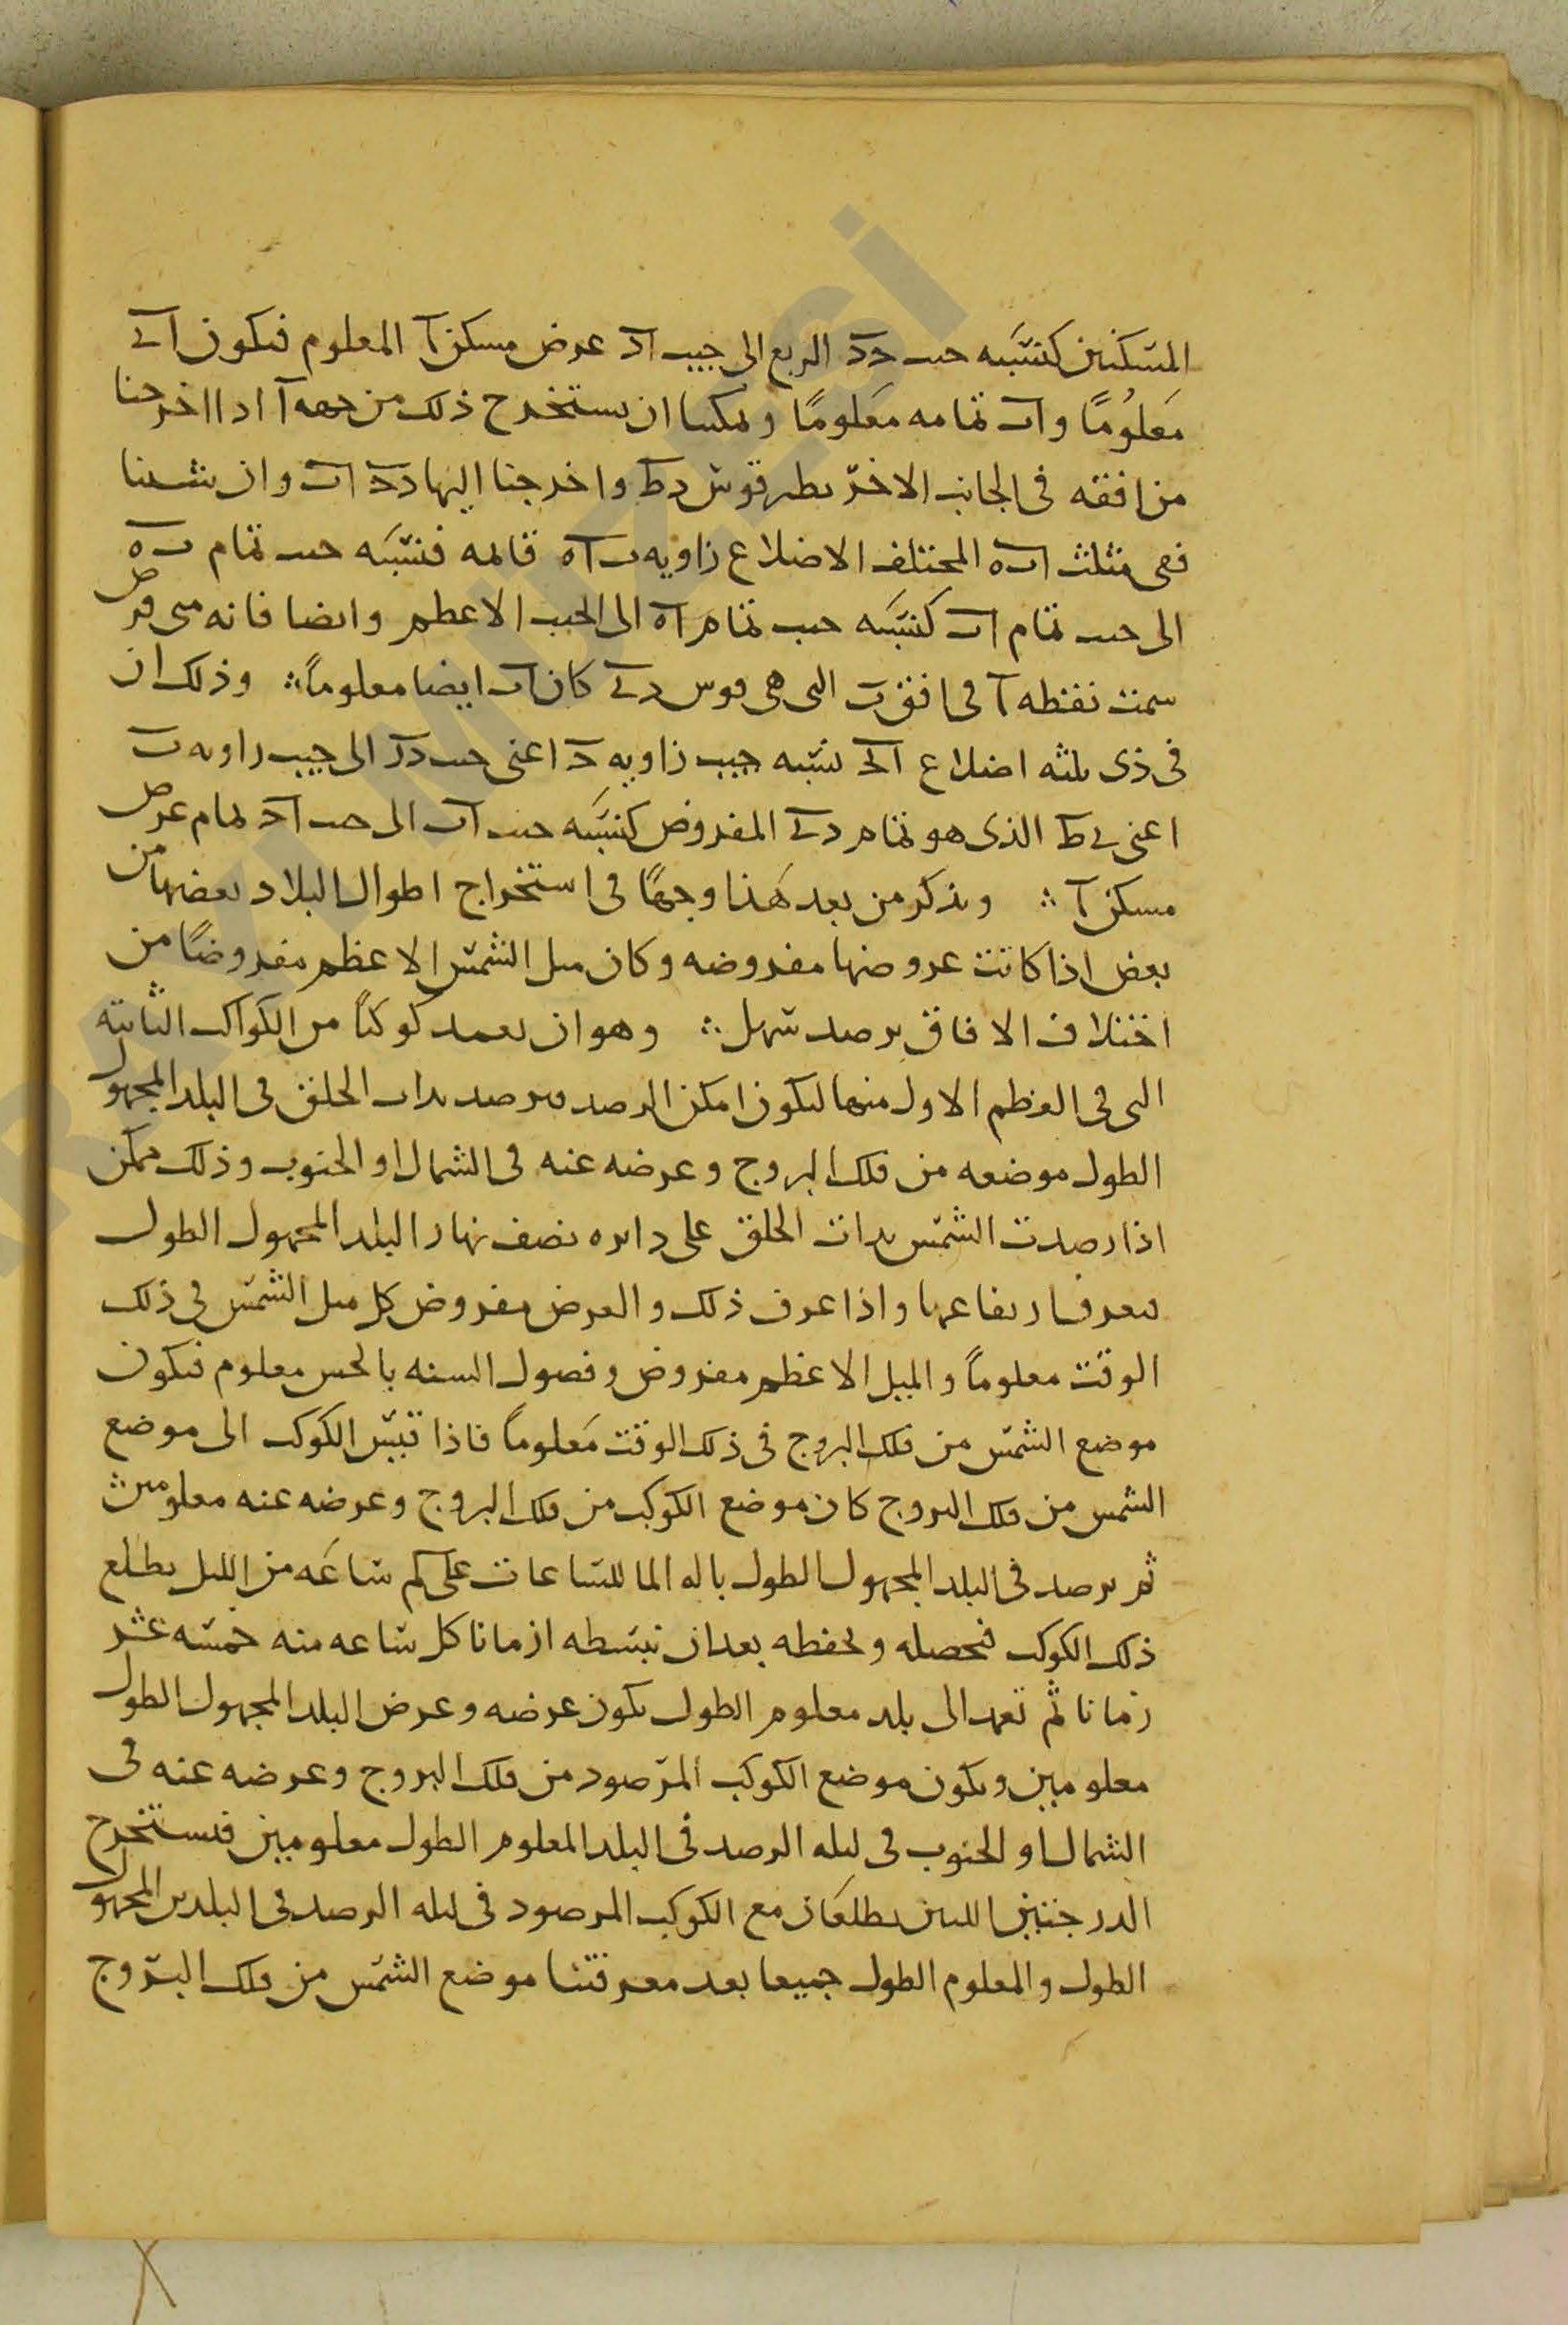 المسكنين كنسبه حىب حد الربع الى جيب اد عرض مسكن آ المعلوم فىكون اى
معلومًا واب تمامه معلومًا وىمكننا ان ىستخرج ذلك من جهه آ اذا اخرجنا
من افقه فى الجانب الاخر بطير قوس دط واخرجنا اليها دح اب وان شئنا
ففى مثلث ابه المختلف الاضلاع زاويه ب اه قائمه فنسبه حىب تمام به
الى حىب تمام اب كنسبه حىب تمام اه الى الحىب الاعظم وايضا فانه متى فرض
سمت نقطه آ فى افق ب التى هى قوس دى كان اب ايضا معلومًا ؞ وذلك ان
فى ذى ثلثه اضلاع ابح نسبه جيب زاويه ح اعنى حىب دد الى جيب زاويه ب
اعنى ىط الذى هو تمام دى المفروض كنسبه حىب اب الى حىب اح تمام عرض
مسكن آ ؞ ونذكر من بعد هذا وجهًا فى استخراج اطوال البلاد بعضها من
بعض اذا كانت عروضها مفروضه وكان ميل الشمس الاعظم مفروضًا من
اختلاف الافاق برصد سهل ؞ وهو ان نعمد كوكبًا من الكواكب الثابته
التى فى العظم الاول منها ليكون امكن الرصد فنرصد بذات الحلق فى البلد المجهول
الطول موضعه من فلك البروج وعرضه عنه فى الشمال او الجنوب وذلك ممكن
اذا رصدت الشمس بذات الحلق على دايره نصف نهار البلد المجهول الطول
فىعرف ارتفاعها واذا عرف ذلك والعرض مفروض كل ميل الشمس فى ذلك
الوقت معلومًا والميل الاعظم مفروض وفصول السنه بالحس معلوم فىكون
موضع الشمس من فلك البروج فى ذلك الوقت معلومًا فاذا قيس الكوكب الى موضع
الشمس من فلك البروج كان موضع الكوكب من فلك البروج وعرضه عنه معلومين ؞
ثم نرصد فى البلد المجهول الطول باله الما للساعات على كم ساعه من الليل يطلع
ذلك الكوكب فنحصله ونحفظه بعد ان نبسطه ازمانا كل ساعه منه خمسه عشر
زمانا ثم نعمد الى بلد معلوم الطول ىكون عرضه وعرض البلد المجهول الطول
معلومين وىكون موضع الكوكب المرصود من فلك البروج وعرضه عنه فى
الشمال او الجنوب فى ليله الرصد فى البلد المعلوم الطول معلومين فنستخرج
الدرجتين اللتين تطلعان مع الكوكب المرصود فى ليله الرصد فى البلدين المجهول
الطول والمعلوم الطول جميعا بعد معرفتنا موضع الشمس من فلك البروج